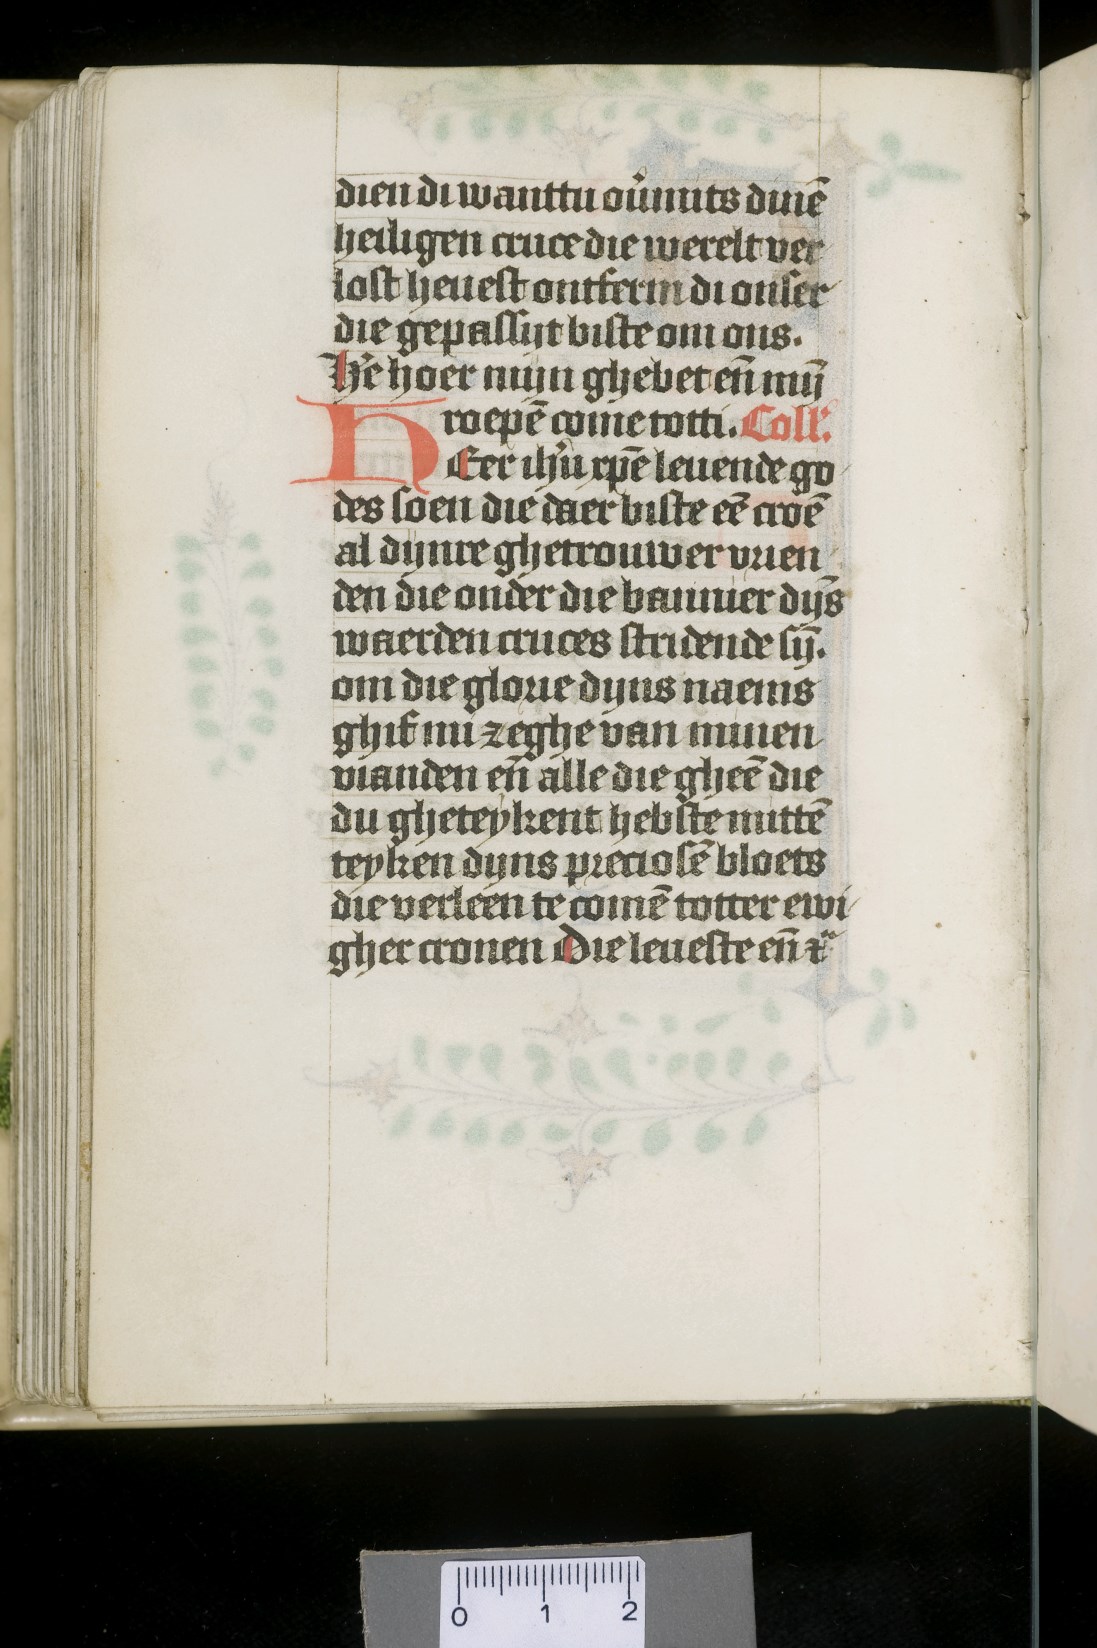 dien di wanttu ou̾mits duiē
heiligen cruce die werelt ver
lost heuest ontferm di onser
die gepassijt biste om ons.
Hr̄e hoer mijn ghebet en̄ mij̄
roepē come totti. Coll̾.
HEer ih̾u xpē leuende go
des soen die daer biste eē croē
al dijnre ghetrouwer vrien
den die onder die bannier dijs̄
waerden cruces stridende sij̄.
om die glorie dijns naems
ghif mi zeghe van minen
vianden en̄ alle die gheē die
du gheteykent hebste mittē
teyken dijns preciosē bloets
die verleen te comē totter ewi
gher cronen Die leueste en̄ rͣ
0 1 2